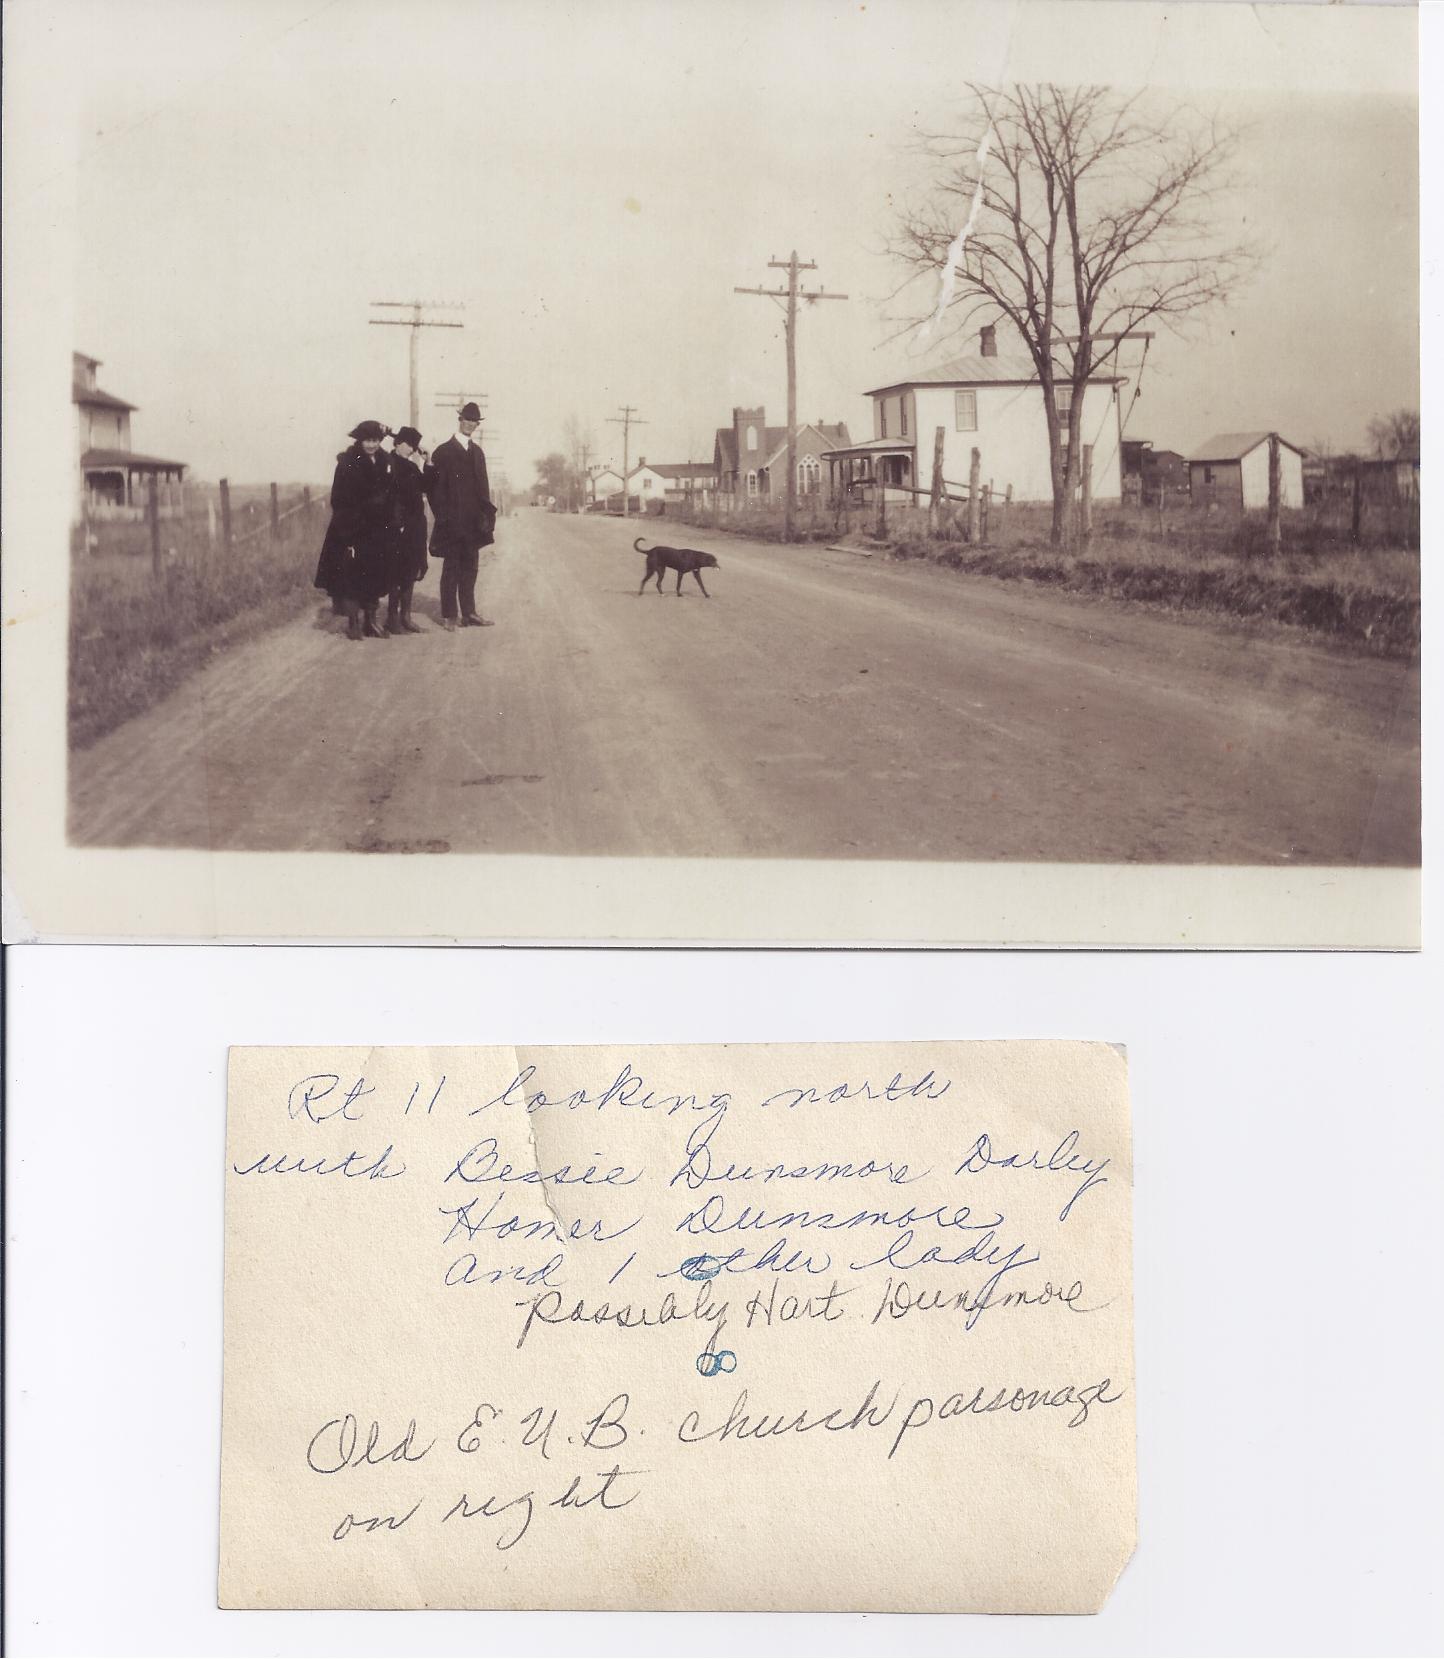 Rt 11 looking north
with Bessie Dunsmore Darley
Homer Dunsmore
and 1 other lady
possibly Hart Dunsmore
Old E.U.B. church parsonage
on right